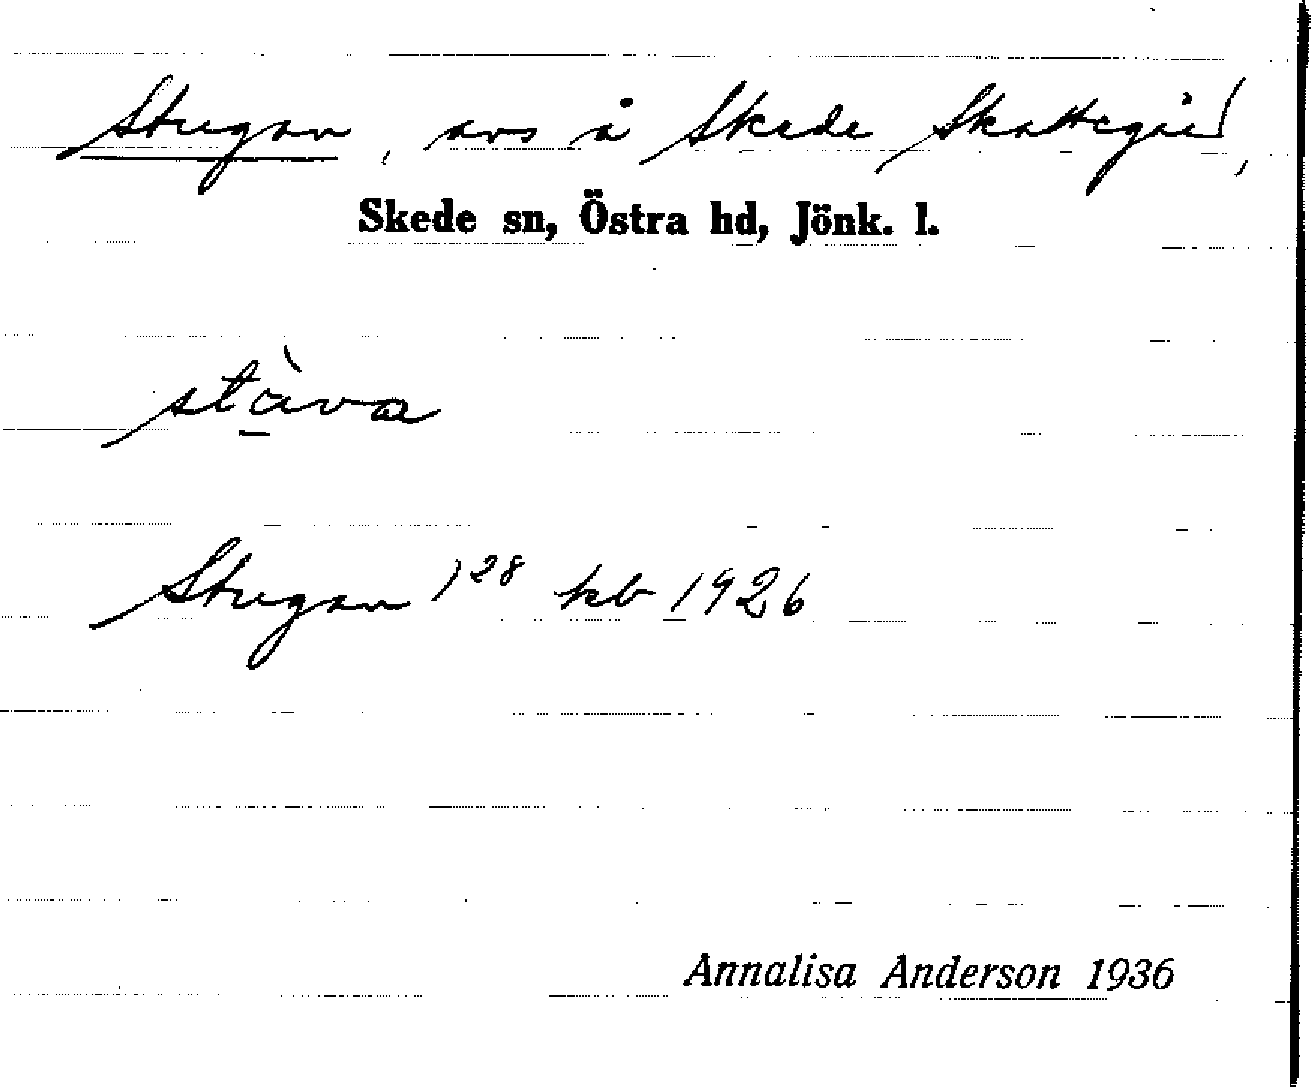 Stugan, avs å Skede Skattegård,
Skede sn, Östra hd, Jönk. l.
stàva
Stugan 1²⁸ kb 1926
Annalisa Anderson 1936